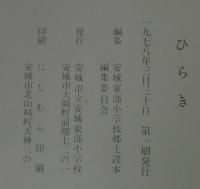 ひらき
一九七八年三月三十日　第一刷発行
編集　安城東部小学校郷土読本
編集委員会
発行　安城市立安城東部小学校
安城市大岡町前畑七二の一
印刷　にしむら印刷
安城市北山崎町天神三の一